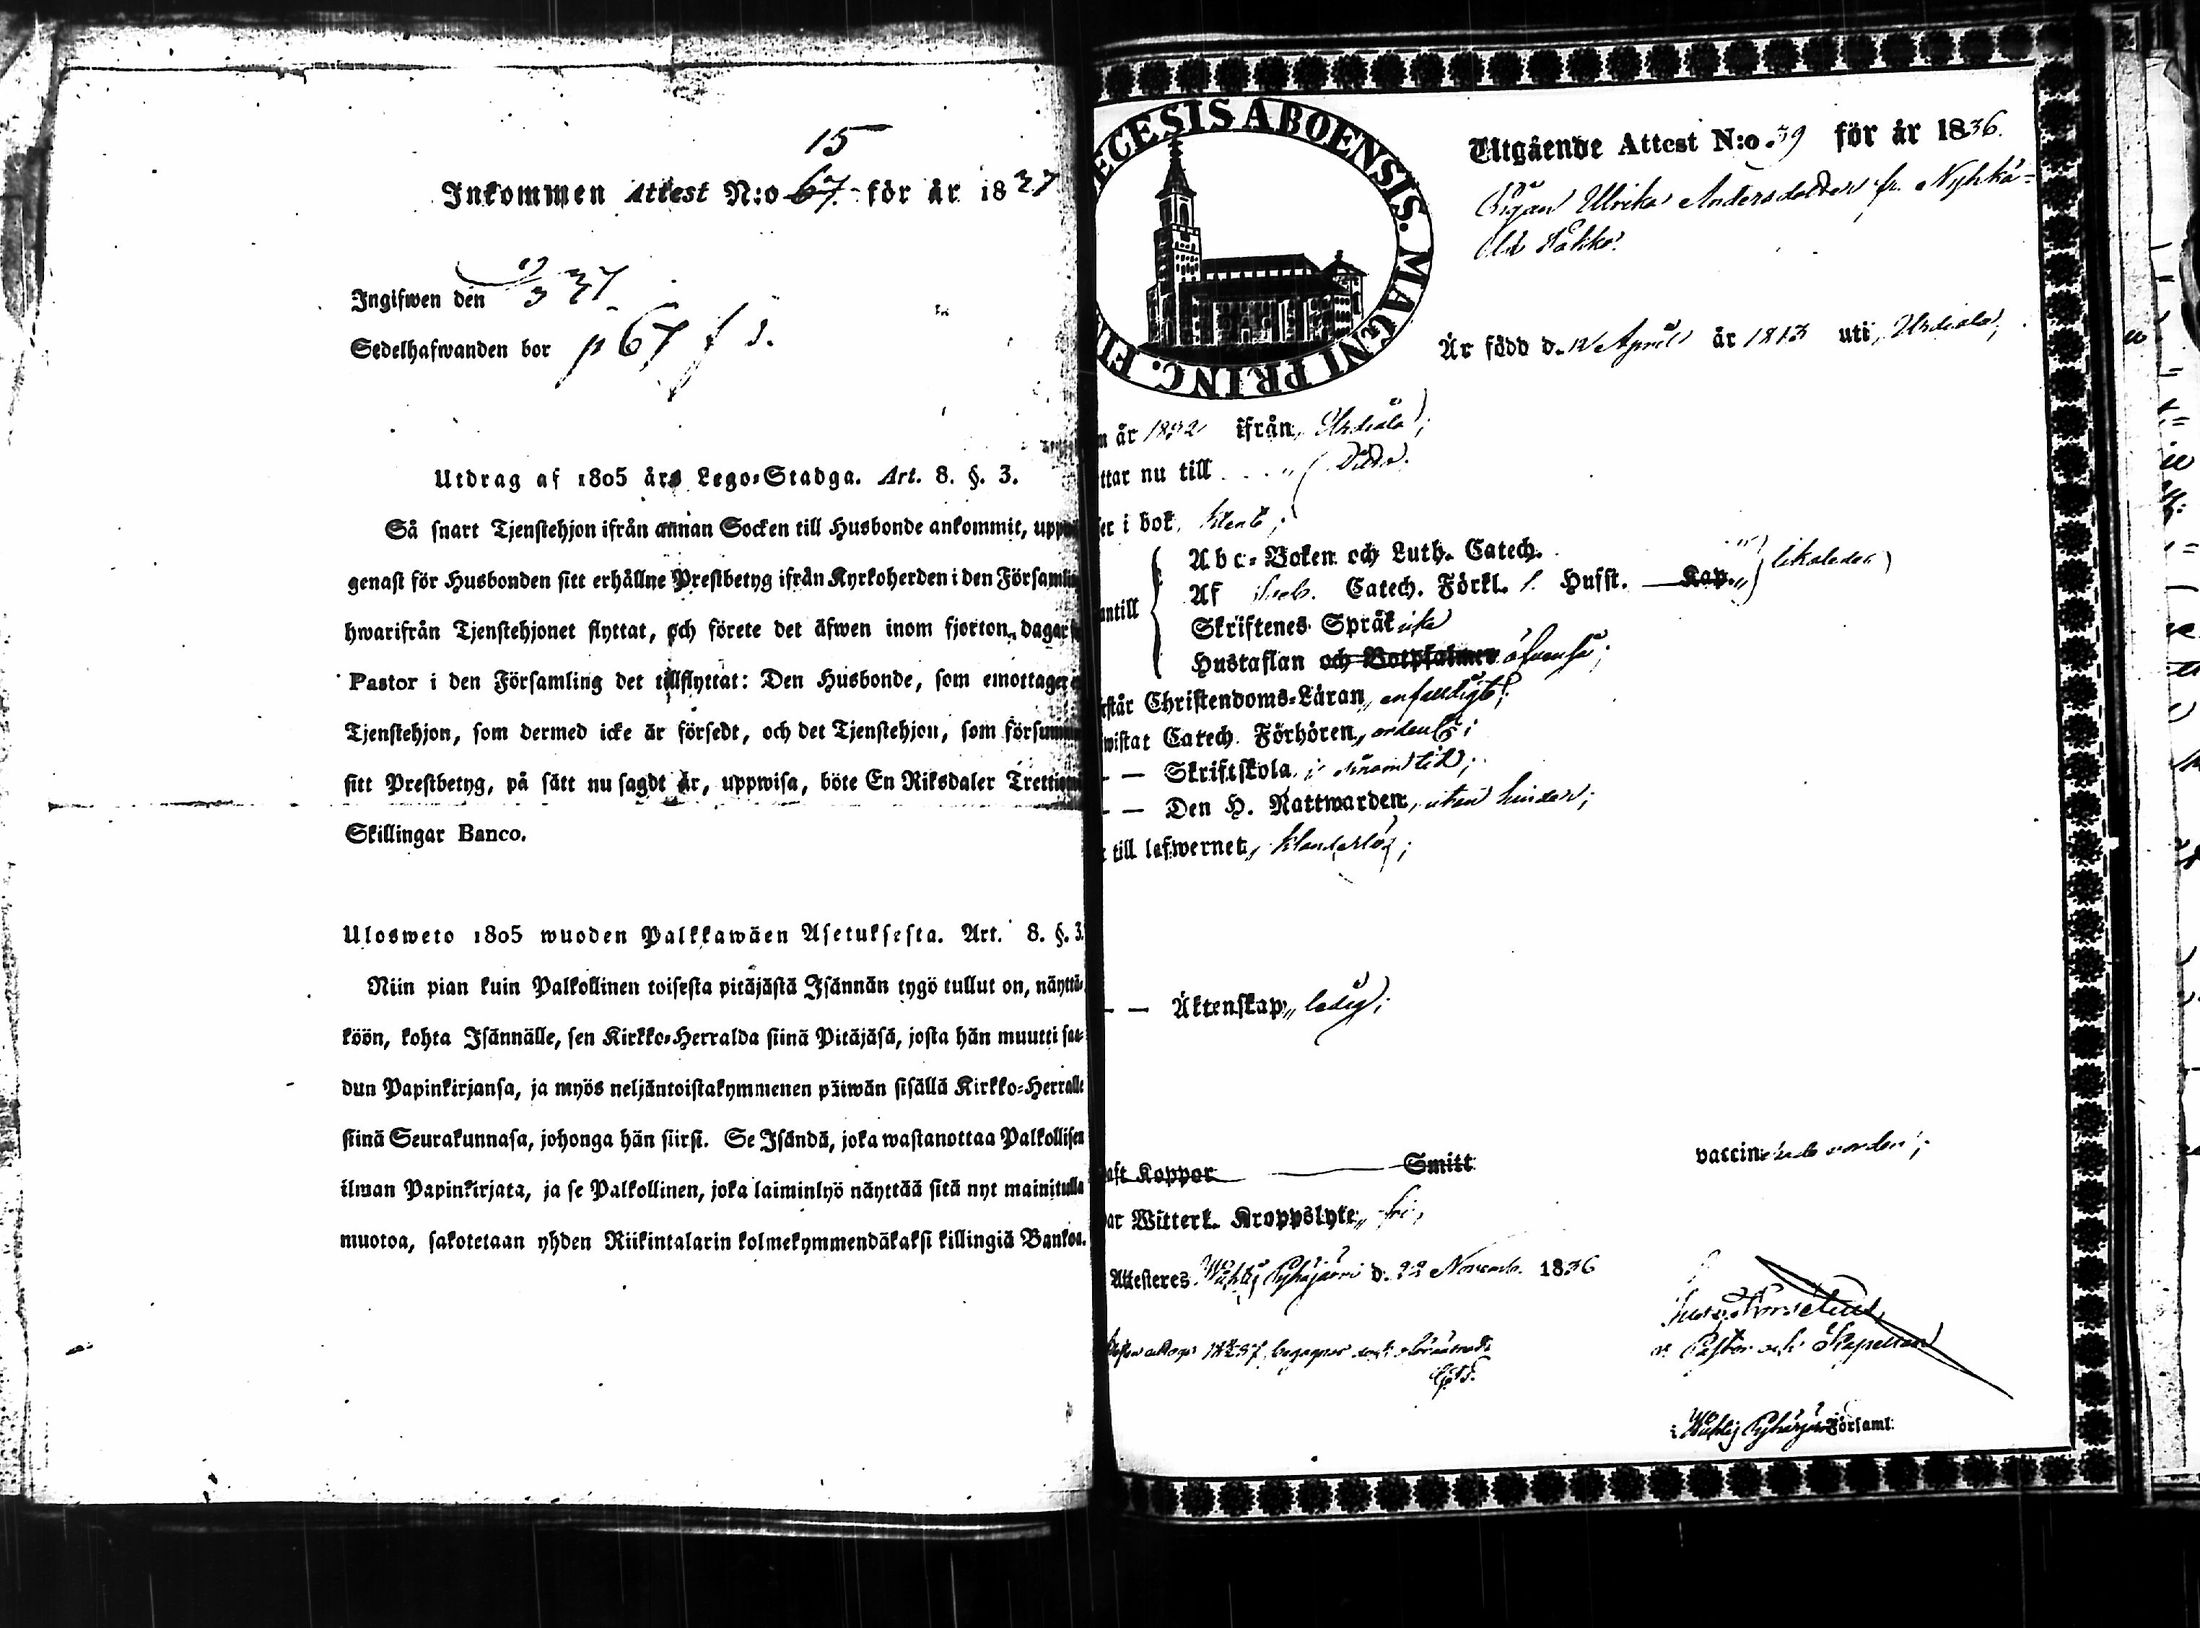 15
Inkommen Attest N:o 67. för år 1837
Ingifwen den 3 37
Sedelhafwanden bor p 67 f 3.
Utdrag af 1805 års Lego-Stadga. Art. 8. §. 3.
Så snart Tjenstehjon ifrån annan Socken till Husbonde ankommit, upp
genast för Husbonden sitt erhållne Prestbetyg ifrån Kyrkoherden i den Församlin
hwarifrån Tjenstehjonet flyttat, och förete det äfwen inom fjorton dagar
Pastor i den Församling det tillflyttat: Den Husbonde, som emottager
Tjenstehjon, som dermed icke är försedt, och det Tjenstehjon, som försumm
sitt Prestbetyg, på sätt nu sagdt är, uppwisa, böte En Riksdaler Trettio
Skillingar Banco.
Ulosweto 1805 wuoden Palkkawäen Asetuksesta. Art. 8. §. 3.
Niin pian kuin Palkollinen toisesta pitäjästä Isännän tygö tullut on, näyttä-
köön, kohta Isännälle, sen Kirkko-Herralda siinä Pitäjäsä, josta hän muutti saa-
dun Papinkirjansa, ja myös neljäntoistakymmenen päiwän sisällä Kirkko-Herralle
siinä Seurakunnasa, johonga hän siirsi. Se Isändä, joka wastanottaa Palkollisen
ilman Papinkirjata, ja se Palkollinen, joka laiminlyö näyttää sitä nyt mainitulla
muotoa, sakotetaan yhden Riikintalarin kolmekymmendäkaksi killingiä Bankoa.
ECESIS ABOENSIS. MAGNI PRINC. FI
Utgående Attest N:o 39 för år 1836.
Pigan Ulrika Andersdotter fr. Nyhkä-
lä Pakko.
Är född d. 12 April år 1813 uti Urdiala,
n år 1832 ifrån Urdiala;
ttar nu till Dito.
er i bok,
antill
Abc-Boken och Luth. Catech.
Af Seb. Catech. Förkl. Husst. Kap. likaledes
Skriftenes Språk icke
Hustaflan och Botpsalmer äfwenså;
rstår Christendoms-Läran enfaldigt;
wistat Catech. Förhören, ordentl;
— — Skriftskola
— — Den H. Nattwarden, utan hinder;
till lefwernet, klanderlös;
— — Äktenskap, ledig;
aft Koppor Smitt vaccinerade worden;
ar Witterl. Kroppslyte, fri,
Attesteres Wichtis Pyhäjärvi d. 22 Novemb. 1836
v. Pastor och Kapellan
i Wichtis Pyhäjärvi Församl.